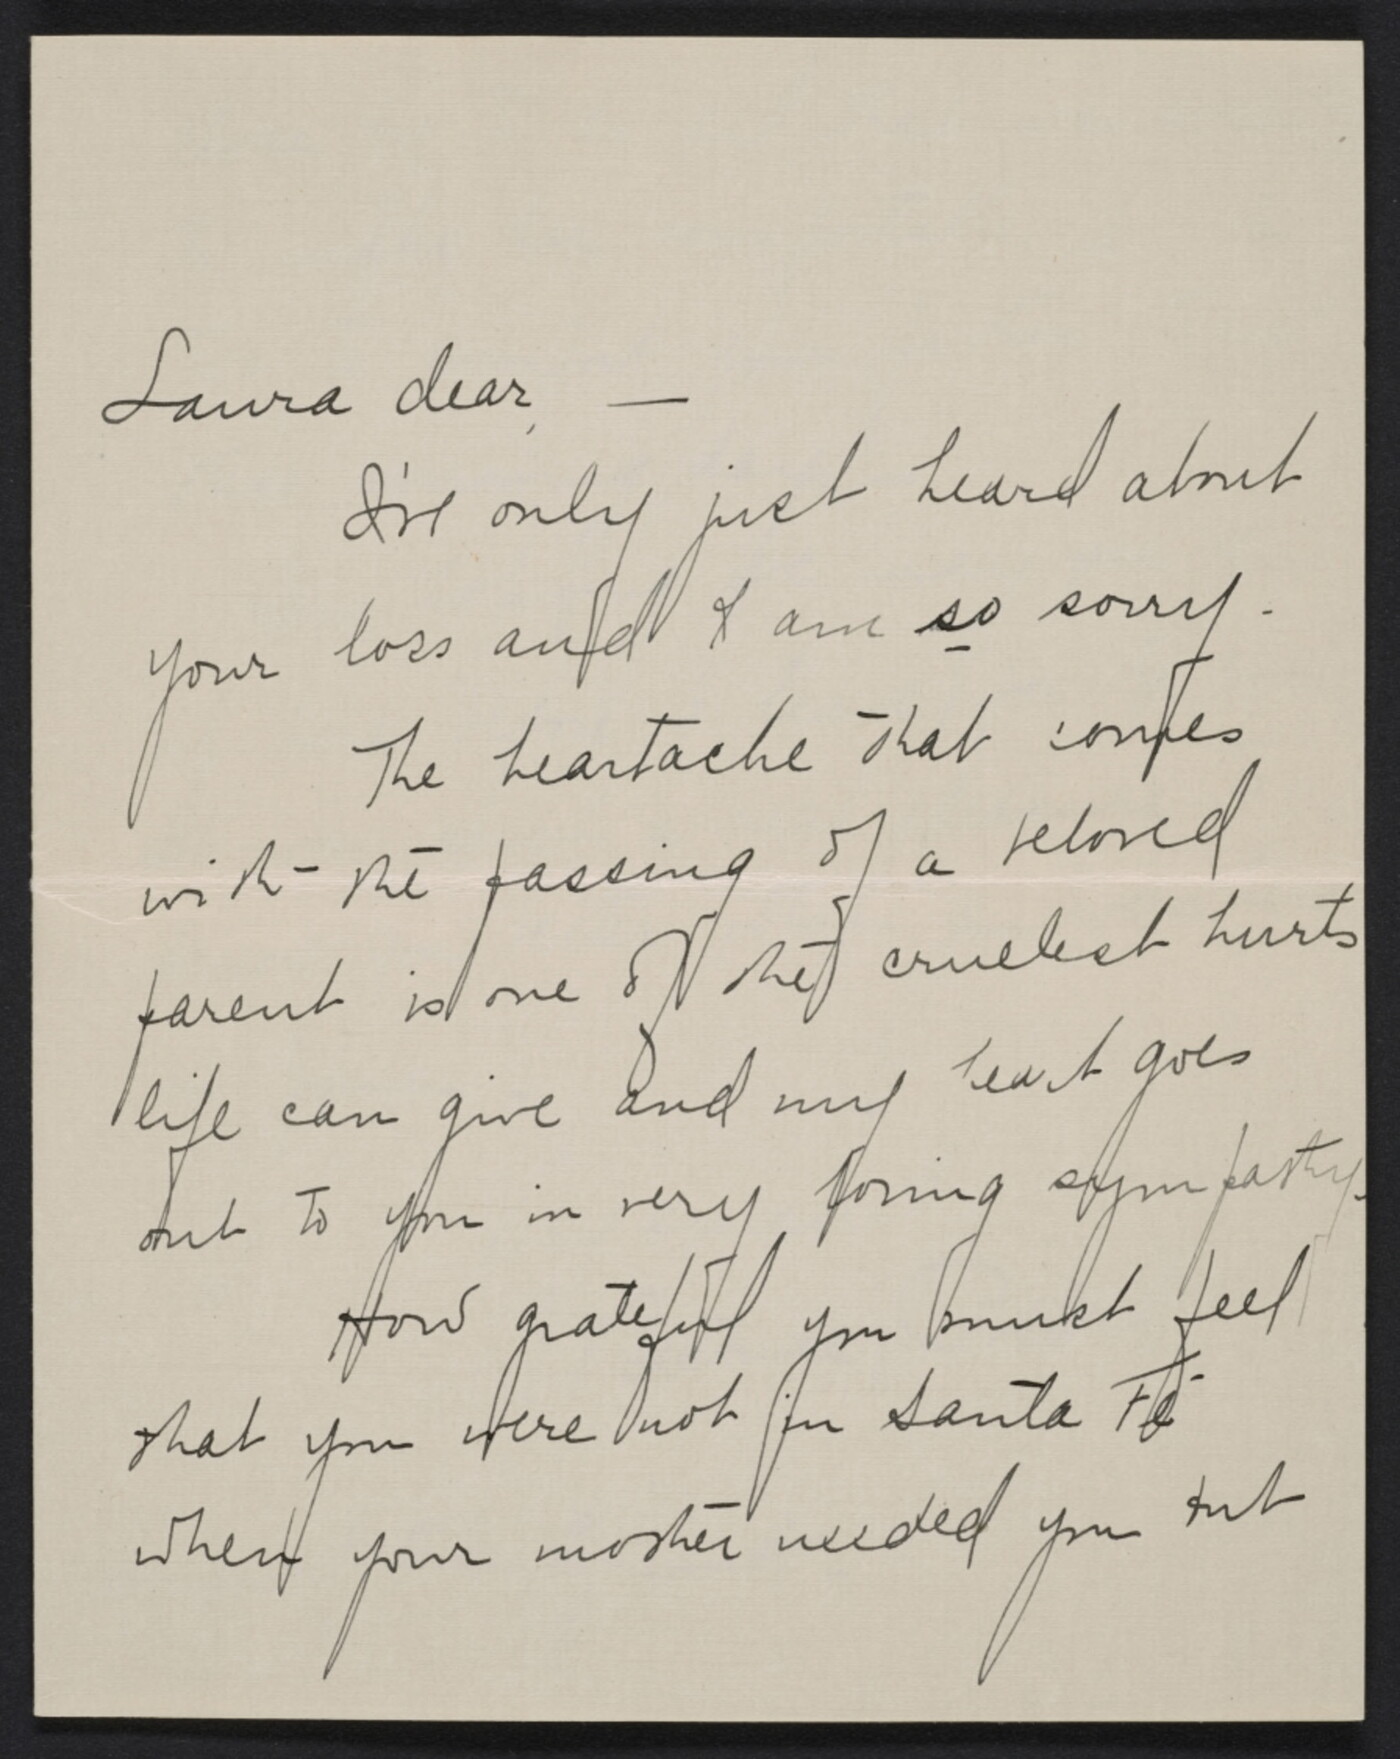 Laura dear, —
I've only just heard about
your loss and I am so sorry.
The heartache that comes
with the passing of a beloved
parent is one of the cruelest hurts
life can give and my heart goes
out to you in very loving sympathy.
How grateful you must feel
that you were not in Santa Fé
when your mother needed you but